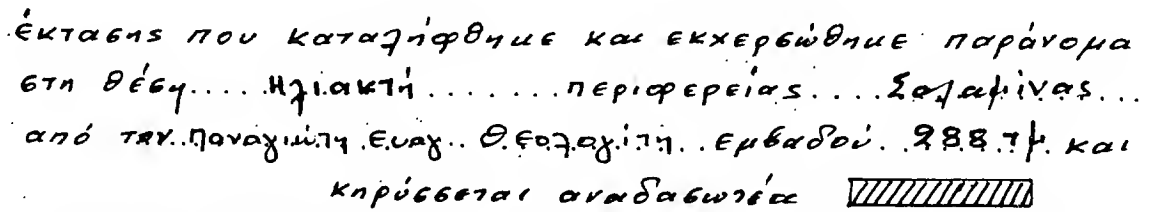 έκτασης που καταλήφθηκε και εκχερσώθηκε παράνομα
στη θέση.....Ηλιακτή.......περιφερείας....Σαλαμίνας...
από τον..Παναγιώτη.Ευαγ..Θεολογίτη..εμβαδού..288.τμ.και
κηρύσσεται αναδασωτέα